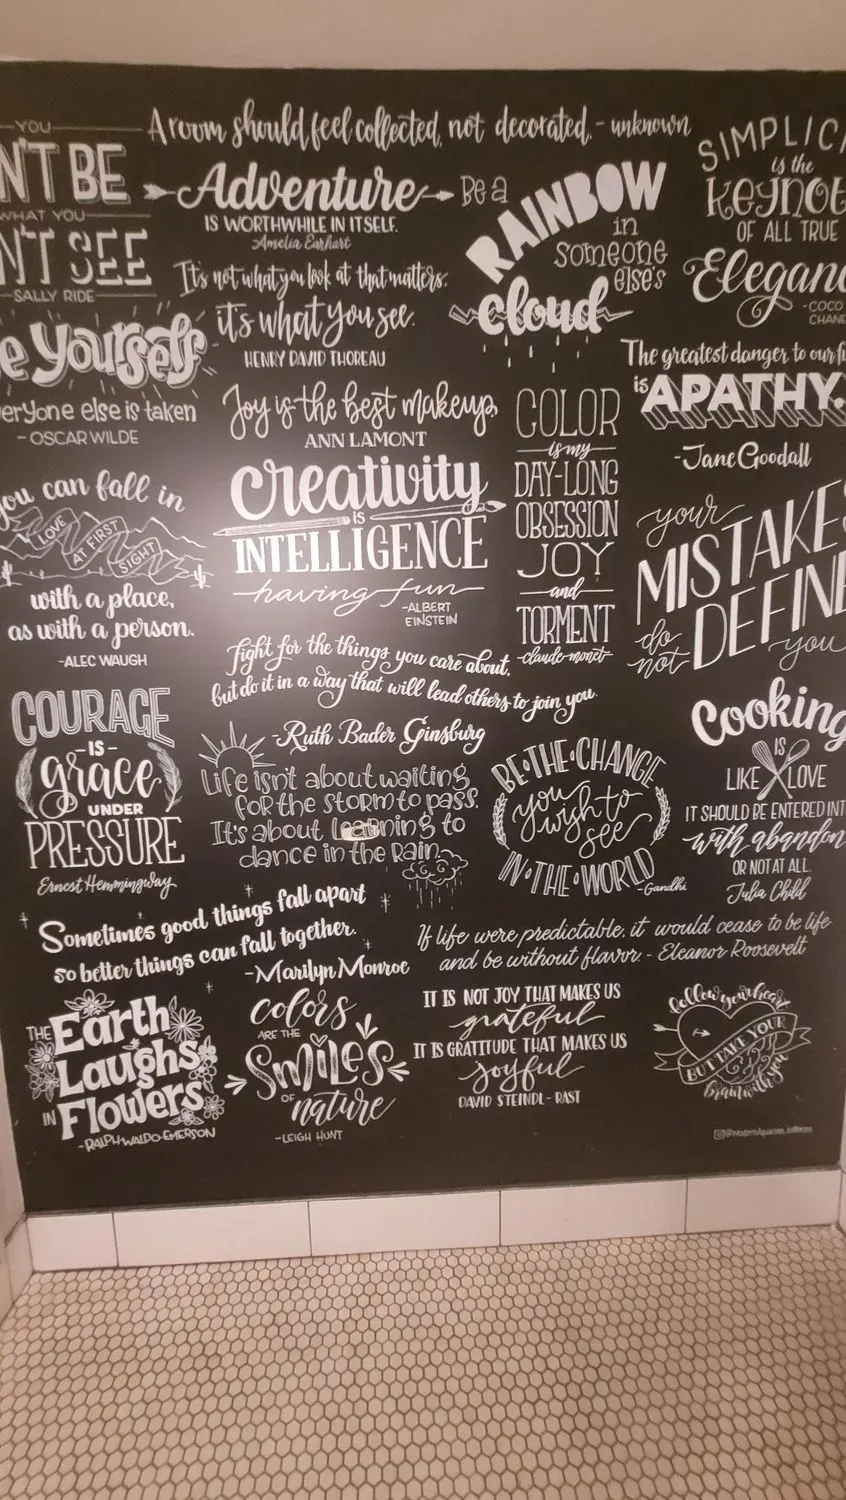 YOU
N'T BE
WHAT YOU
N'T SEE
SALLY RIDE
A room should feel collected, not decorated. - unknown
Adventure
IS WORTHWHILE IN ITSELF.
Amelia Earhart
Be a
RAINBOW
in
someone
else's
cloud
SIMPLICI
is the
KEYNOT
OF ALL TRUE
Eleganc
-COCO
CHANE
It's not what you look at that matters.
it's what you see.
HENRY DAVID THOREAU
e yourself
veryone else is taken
- OSCAR WILDE
Joy is the best makeup,
ANN LAMONT
The greatest danger to our fu
is APATHY.
-Jane Goodall
COLOR
is my
DAY-LONG
OBSESSION
JOY
and
TORMENT
claude monet
creativity
IS
INTELLIGENCE
having fun
-ALBERT
EINSTEIN
you can fall in
LOVE
AT FIRST
SIGHT
with a place,
as with a person.
-ALEC WAUGH
your
MISTAKES
do
not
DEFINE
you
fight for the things you care about.
but do it in a way that will lead others to join you.
-Ruth Bader Ginsburg
COURAGE
-IS-
grace
UNDER
PRESSURE
Ernest Hemmingway
Life isn't about waiting
for the storm to pass.
It's about learning to
dance in the rain.
BE•THE•CHANGE
you
wish to
see
IN•THE•WORLD
-Gandhi
Cooking
IS
LIKE LOVE
IT SHOULD BE ENTERED INT
with abandon
OR NOT AT ALL.
Julia Child
Sometimes good things fall apart
so better things can fall together.
-Marilyn Monroe
If life were predictable, it would cease to be life
and be without flavor. - Eleanor Roosevelt
THE Earth
Laughs
IN Flowers
-RALPH-WALDO-EMERSON
colors
ARE THE
SMILES
OF
nature
-LEIGH HUNT
IT IS NOT JOY THAT MAKES US
grateful
IT IS GRATITUDE THAT MAKES US
joyful
DAVID STEINDL-RAST
follow your heart
BUT TAKE YOUR
brain with you